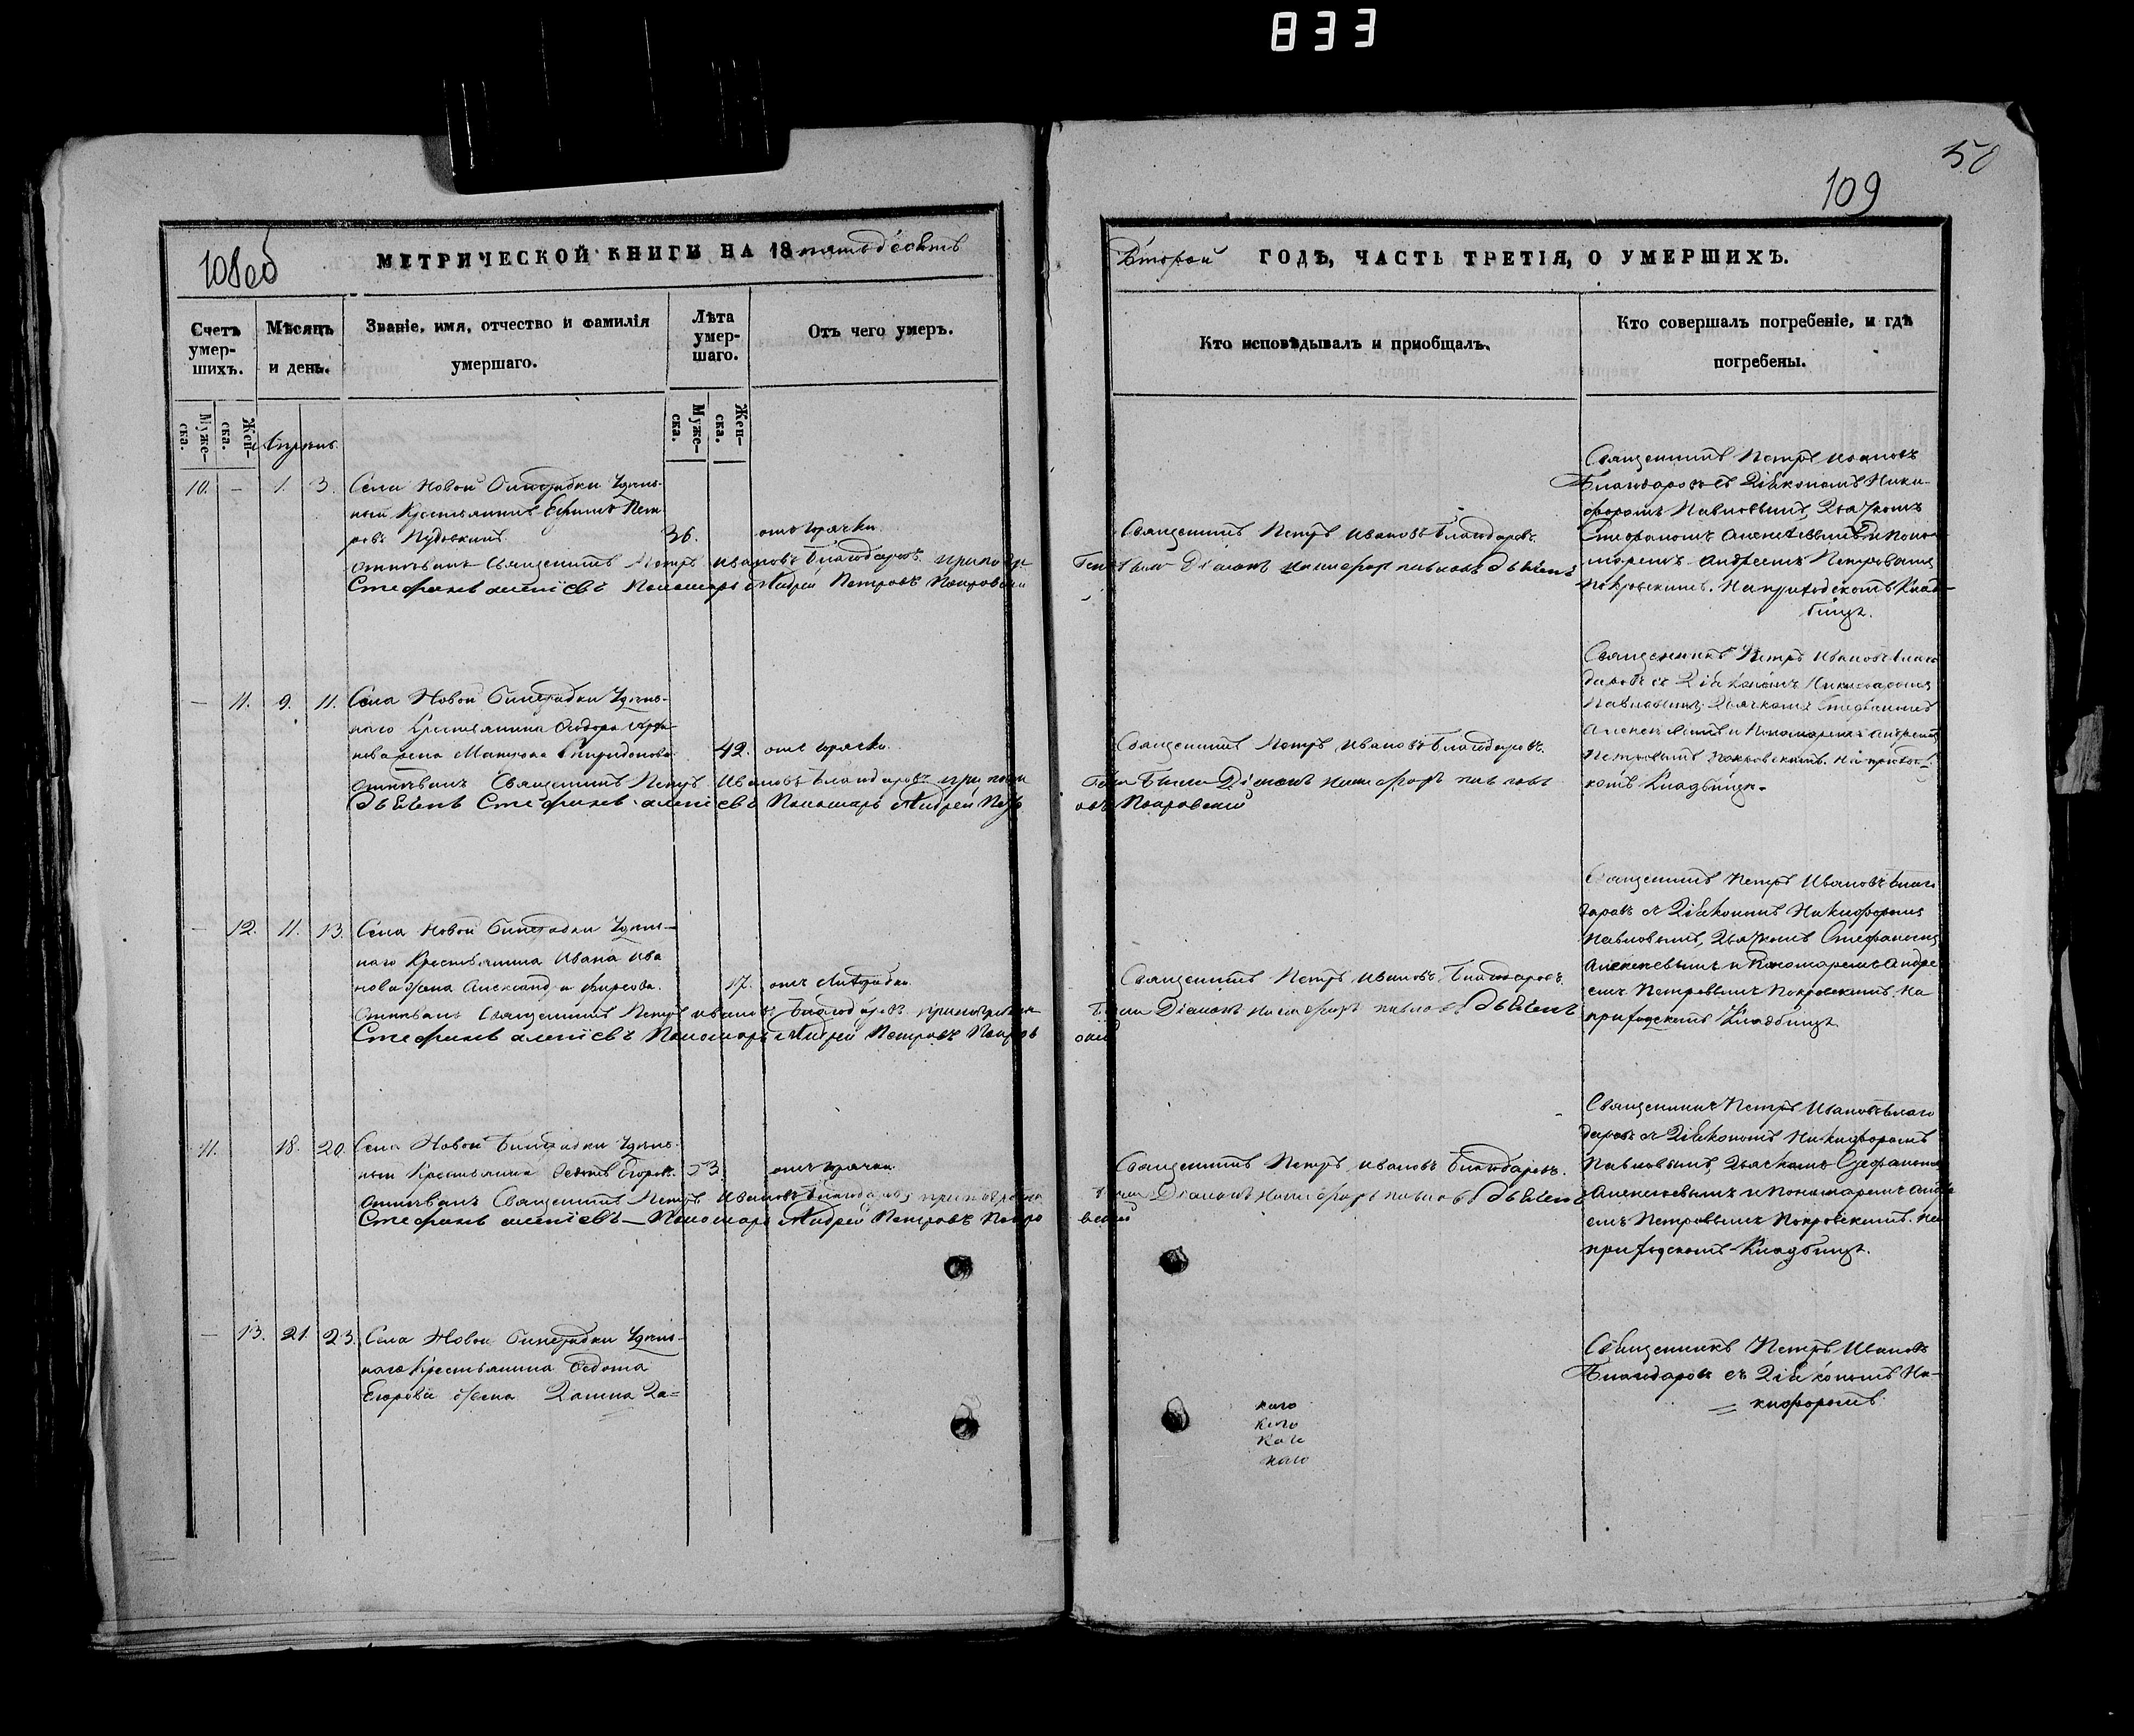 833
50
109
108об
МЕТРИЧЕСКОЙ КНИГИ НА 18 пятьдесятъ
Второй ГОДЪ, ЧАСТЬ ТРЕТІЯ, О УМЕРШИХЪ.
Счетъ умер-шихъ.
Мѣсяцъ и день.
Званіе, имя, отчество и фамилія
умершаго.
Лѣта умер-шаго.
Отъ чего умеръ.
Кто исповѣдывалъ и пріобщалъ.
Кто совершалъ погребеніе, и гдѣ
погребены.
Муже-ска.
Жен-ска.
Муже-ска.
Жен-ска.
Апрель.
10. — 1. 3. Села Новой Бинарадки Удѣль-
ный Крестьянинъ Ефимъ Пет
ровъ 36. отъ горячки
Отпѣвалъ Священникъ Петръ Ивановъ Благодаровъ
Стефанъ алексіевъ Пономарь Андрей Петровъ Покровскій
Священникъ Петръ Ивановъ Благодаровъ.
Діаконъ никифоръ павловъ дьячекъ
Священникъ Петръ Ивановъ
Благодаровъ съ Діакономъ Ники-
форомъ Павловымъ, Дьячкомъ
Стефаномъ Алексѣевымъ и Поно-
маремъ Андреемъ Петровымъ
Покровскимъ. На приходскомъ Клад-
бищѣ.
— 11. 9. 11. Села Новой Бинарадки Удѣль-
наго Крестьянина Ѳеодора
жена Спиридонова 42. отъ горячки.
Отпѣвалъ Священникъ Петръ Ивановъ Благодаровъ
дьячекъ Стефанъ алексіевъ Пономарь Андрей Петр
Священникъ Петръ Ивановъ Благодаровъ.
были Діаконъ никифоръ павловъ
овъ Покровскій
Священникъ Петръ Ивановъ Благо
даровъ съ Діакономъ Никифоромъ
Павловымъ, Дьячкомъ Стефаномъ
Алексѣевымъ и Пономаремъ Андреемъ
Петровымъ Покровскимъ. На приход-
комъ Кладбищѣ.
— 12. 11. 13. Села Новой Бинарадки Удѣль-
наго Крестьянина Ивана Ива
нова жена Александра Фирсова. 17. отъ лихорадки.
Отпѣвалъ Священникъ Петръ Ивановъ Благодаровъ
Стефанъ алексіевъ Пономарь Андрей Петровъ Покров
Священникъ Петръ Ивановъ Благодаровъ
были Діаконъ никифоръ павловъ дьячекъ
скій
Священникъ Петръ Ивановъ Благо
даровъ съ Діакономъ Никифоромъ
Павловымъ, Дьячкомъ Стефаномъ
Алексеевымъ и Пономаремъ Андре
емъ Петровымъ Покровскимъ. На
приходскомъ Кладбищѣ
11. 18. 20. Села Новой Бинарадки Удѣль-
ный Крестьянинъ Егоровъ. 53. отъ горячки.
Отпѣвалъ Священникъ Петръ Ивановъ Благодаровъ
Стефанъ алексіевъ — Пономарь Андрей Петровъ Покро
Священникъ Петръ Ивановъ Благодаровъ.
были Діаконъ никифоръ павловъ дьячекъ
вскій
Священникъ Петръ Ивановъ Благо
даровъ съ Діакономъ Никифоромъ
Павловымъ, Дьячкомъ Стефаномъ
Алексеевымъ и Пономаремъ Андре
емъ Петровымъ Покровскимъ. На
приходскомъ Кладбищѣ.
— 13. 21. 23. Села Новой Бинарадки Удѣль-
наго Крестьянина Ѳедота
Егорова жена Да=
Священникъ Петръ Ивановъ
Благодаровъ съ Діакономъ Ни-
= кифоромъ
каго
каго
каго
каго